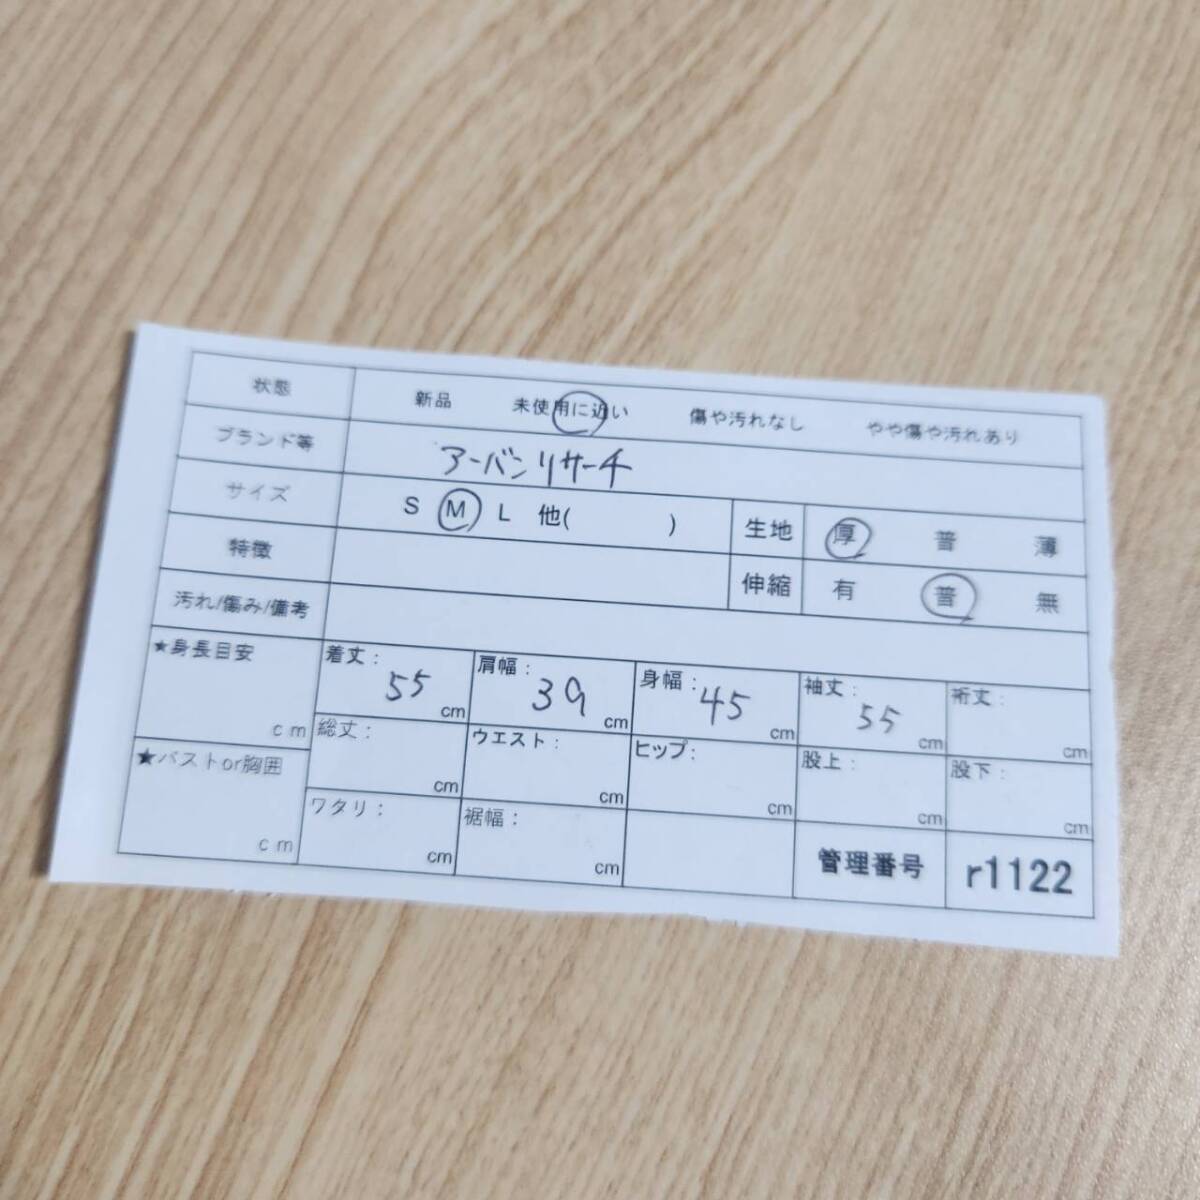 状態 新品 未使用に近い 傷や汚れなし やや傷や汚れあり
ブランド等 アーバンリサーチ
サイズ S M L 他( ) 生地 厚 普 薄
特徴 伸縮 有 普 無
汚れ/傷み/備考
★身長目安 cm 着丈: 55 cm 肩幅: 39 cm 身幅: 45 cm 袖丈: 55 cm 裄丈: cm
総丈: cm ウエスト: cm ヒップ: cm 股上: cm 股下: cm
★バストor胸囲 cm ワタリ: cm 裾幅: cm 管理番号 r1122